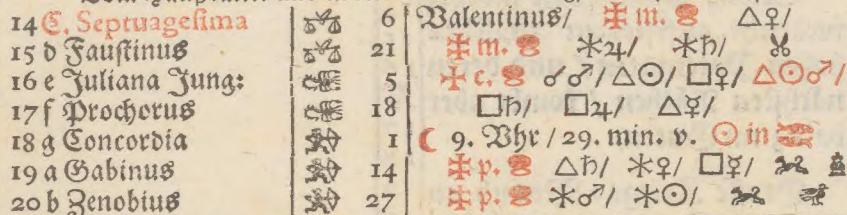 14 C. Septuagesima ♎ 6 Valentinus/ ✠ m. △♀/
15 d Faustinus ♎ 21 ✠ m. ⚹♃/ ⚹♄/
16 e Juliana Jung: ♏ 5 ✠ c. ☌♂/ △☉/ □♀/ △☉♂/
17 f Prochorus ♏ 18 □♄/ □♃/ △☿/
18 g Concordia ♐ 1 ☾ 9. Vhr / 29. min. v. ☉ in ♓
19 a Gabinus ♐ 14 ✠ p. △♄/ ⚹♀/ □☿/
20 b Zenobius ♐ 27 ✠ p. ⚹♂/ ⚹☉/